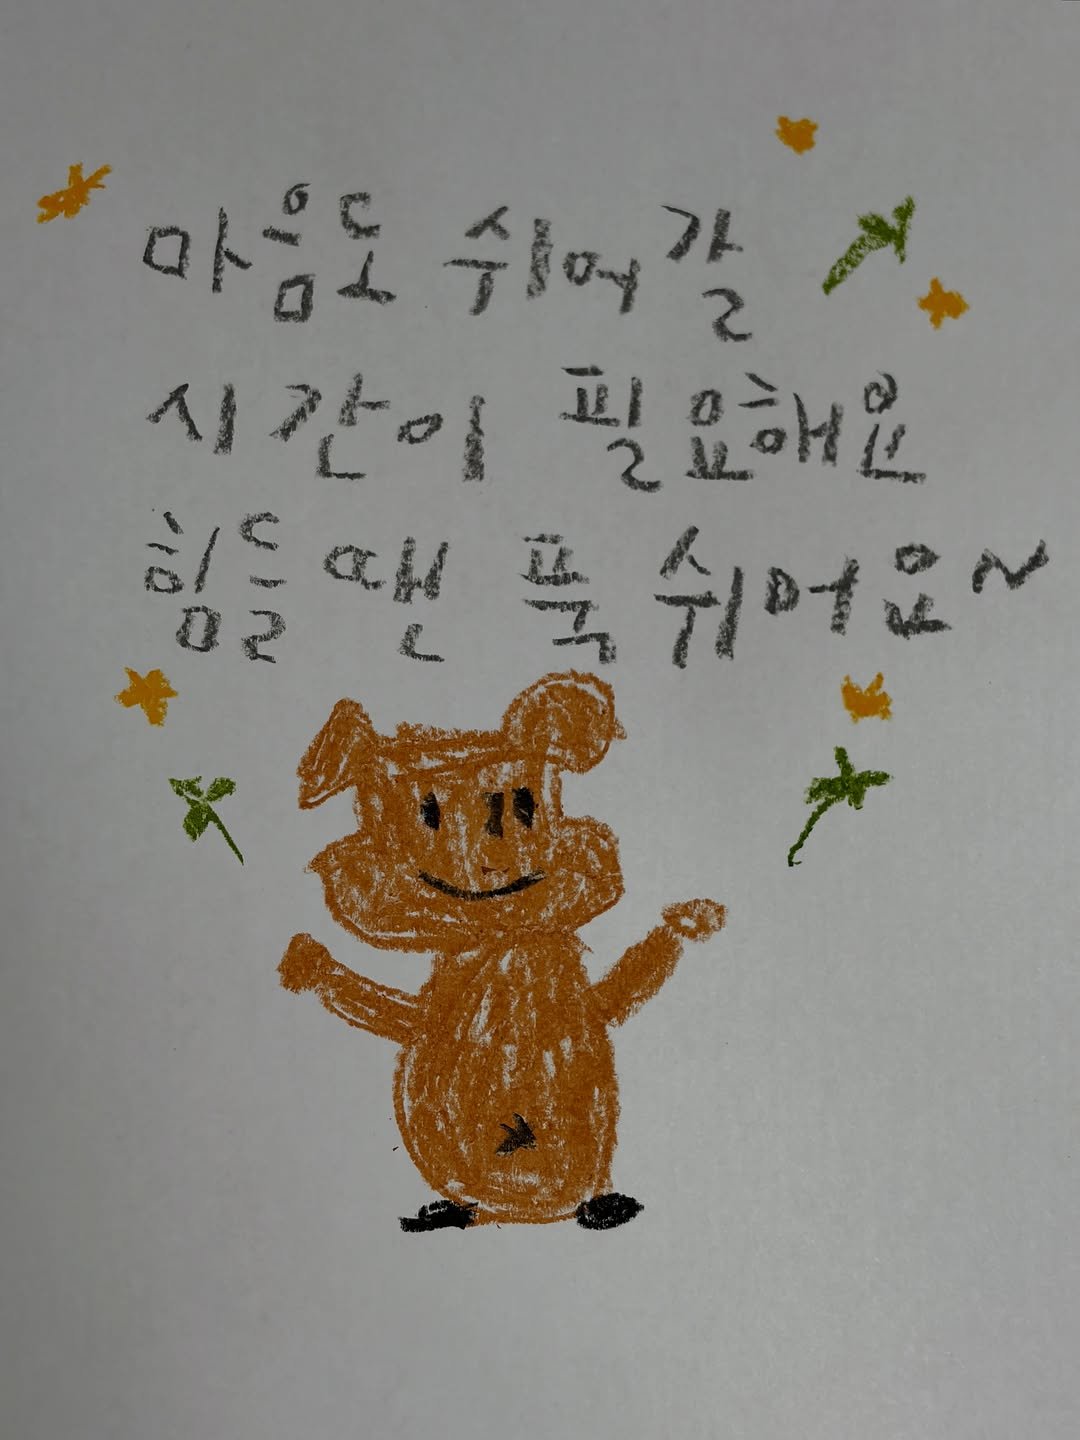 마음도 쉬어갈
시간이 필요해요
힘들땐 푹 쉬어요~